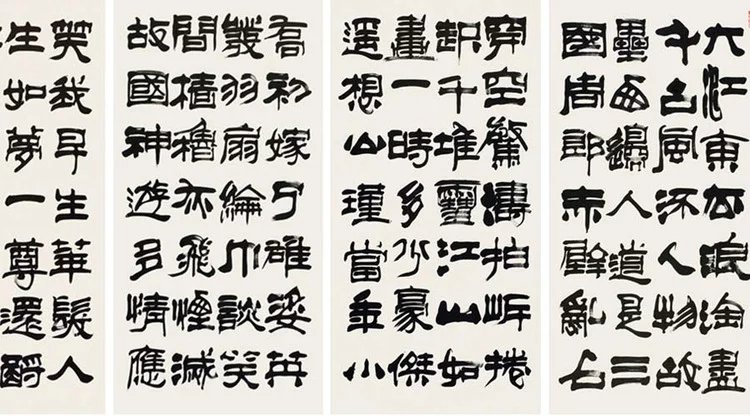 大江東去浪淘盡
千古風流人物故
壘西邊人道是三
國周郎赤壁亂石
穿空驚濤拍岸捲
起千堆雪江山如
畫一時多少豪傑
遙想公瑾當年小
喬初嫁了雄姿英
發羽扇綸巾談笑
間檣櫓灰飛煙滅
故國神遊多情應
笑我早生華髮人
生如夢一尊還酹